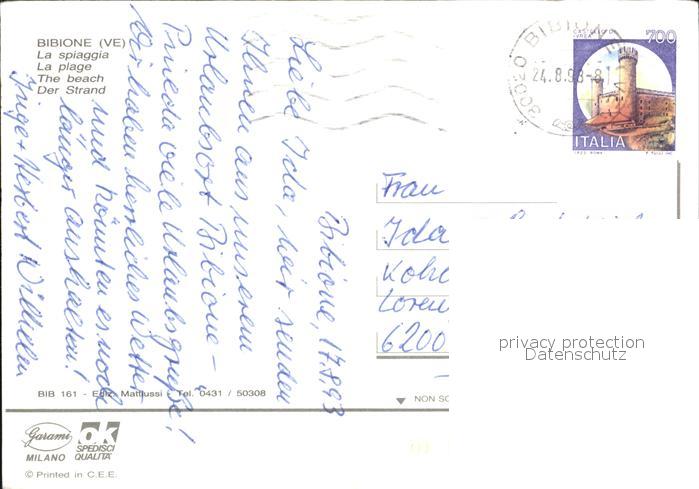 BIBIONE (VE)
La spiaggia
La plage
The beach
Der Strand
30020 BIBIONE
24.8.93-8
700
ITALIA
Bibione, 17.8.93
Liebe Ida, wir senden
Ihnen aus unserem
Urlaubsort Bibione –
Pineda viele Urlaubsgrüße!
Wir haben herrliches Wetter
und könnten es noch
länger aushalten!
Inge + Herbert
Frau
Ida
Loren
6200
privacy protection
Datenschutz
BIB 161 - Ediz. Mattiussi - Tel. 0431 / 50308
NON SC
Garami
MILANO
ok
SPEDISCI
QUALITÀ
© Printed in C.E.E.